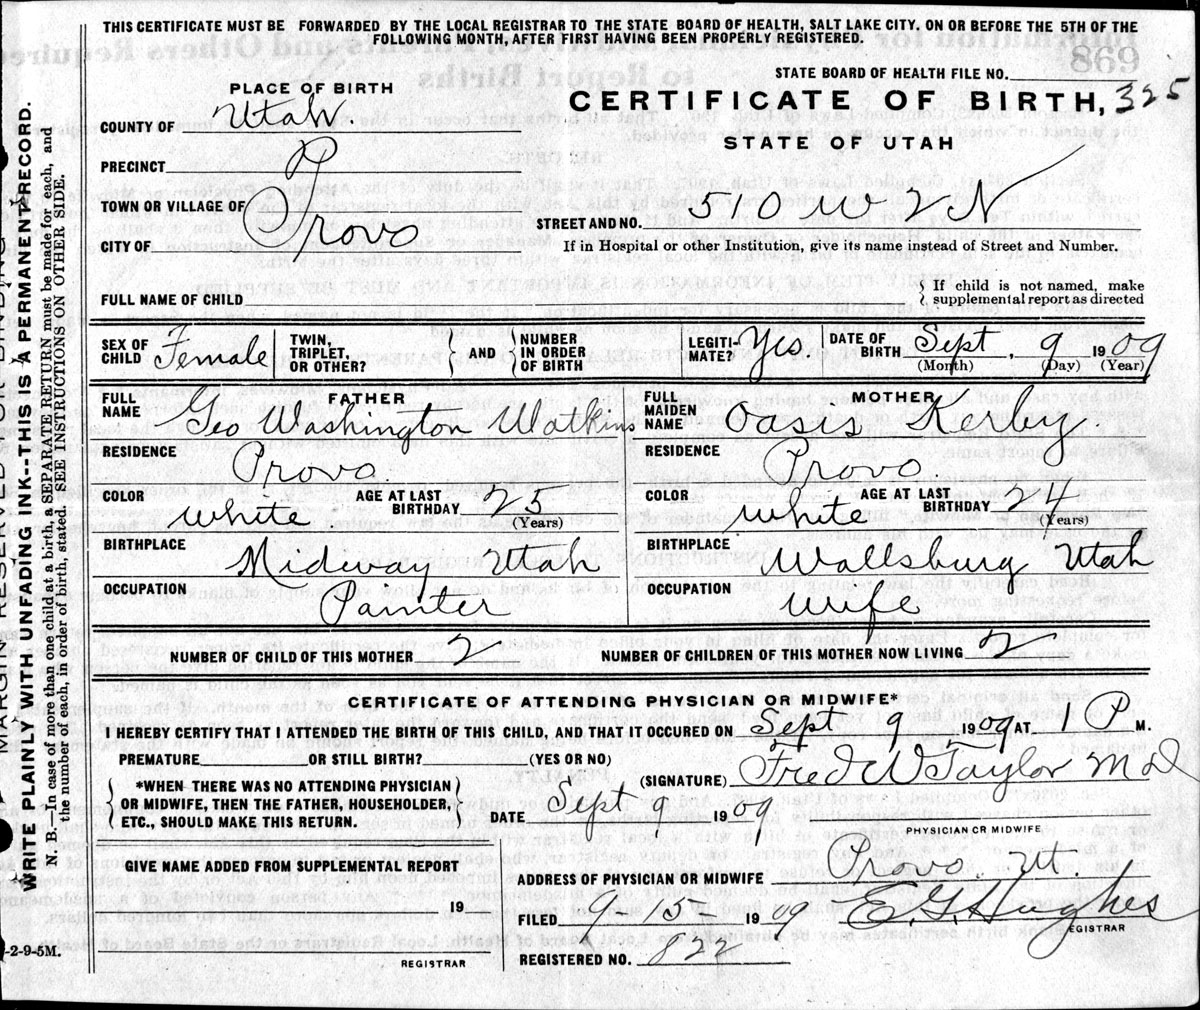 THIS CERTIFICATE MUST BE FORWARDED BY THE LOCAL REGISTRAR TO THE STATE BOARD OF HEALTH, SALT LAKE CITY, ON OR BEFORE THE 5TH OF THE
FOLLOWING MONTH, AFTER FIRST HAVING BEEN PROPERLY REGISTERED.
STATE BOARD OF HEALTH FILE NO.
PLACE OF BIRTH
CERTIFICATE OF BIRTH, 325
COUNTY OF Utah.
STATE OF UTAH
PRECINCT P
TOWN OR VILLAGE OF Provo
STREET AND NO. 510 W 3
CITY OF
If in Hospital or other Institution, give its name instead of Street and Number.
FULL NAME OF CHILD
If child is not named, make
supplemental report as directed
SEX OF CHILD Female TWIN, TRIPLET, OR OTHER? AND NUMBER IN ORDER OF BIRTH LEGITI- MATE? Yes DATE OF BIRTH Sept, 9 1909
(Month) (Day) (Year)
FATHER MOTHER
FULL NAME Geo Washington Watkins FULL MAIDEN NAME Oasis Kerby.
RESIDENCE Provo. RESIDENCE Provo.
COLOR white AGE AT LAST BIRTHDAY 25 (Years) COLOR white AGE AT LAST BIRTHDAY 24 (Years)
BIRTHPLACE Midway Utah BIRTHPLACE Wallsburg Utah
OCCUPATION Painter OCCUPATION wife
NUMBER OF CHILD OF THIS MOTHER 2 NUMBER OF CHILDREN OF THIS MOTHER NOW LIVING 2
CERTIFICATE OF ATTENDING PHYSICIAN OR MIDWIFE*
I HEREBY CERTIFY THAT I ATTENDED THE BIRTH OF THIS CHILD, AND THAT IT OCCURED ON Sept 9 1909 AT 1 P M.
PREMATURE OR STILL BIRTH? (YES OR NO)
(SIGNATURE) Fred W Taylor M d
*WHEN THERE WAS NO ATTENDING PHYSICIAN
OR MIDWIFE, THEN THE FATHER, HOUSEHOLDER,
ETC., SHOULD MAKE THIS RETURN.
DATE Sept 9 1909
PHYSICIAN OR MIDWIFE
GIVE NAME ADDED FROM SUPPLEMENTAL REPORT
19
REGISTRAR
ADDRESS OF PHYSICIAN OR MIDWIFE Provo. Ut.
FILED 9 15 1909 E. G. Hughes
REGISTRAR
REGISTERED NO. 822
WRITE PLAINLY WITH UNFADING INK--THIS IS A PERMANENT RECORD.
N. B.--In case of more than one child at a birth, a SEPARATE RETURN must be made for each, and
the number of each, in order of birth, stated. SEE INSTRUCTIONS ON OTHER SIDE.
-2-9-5M.